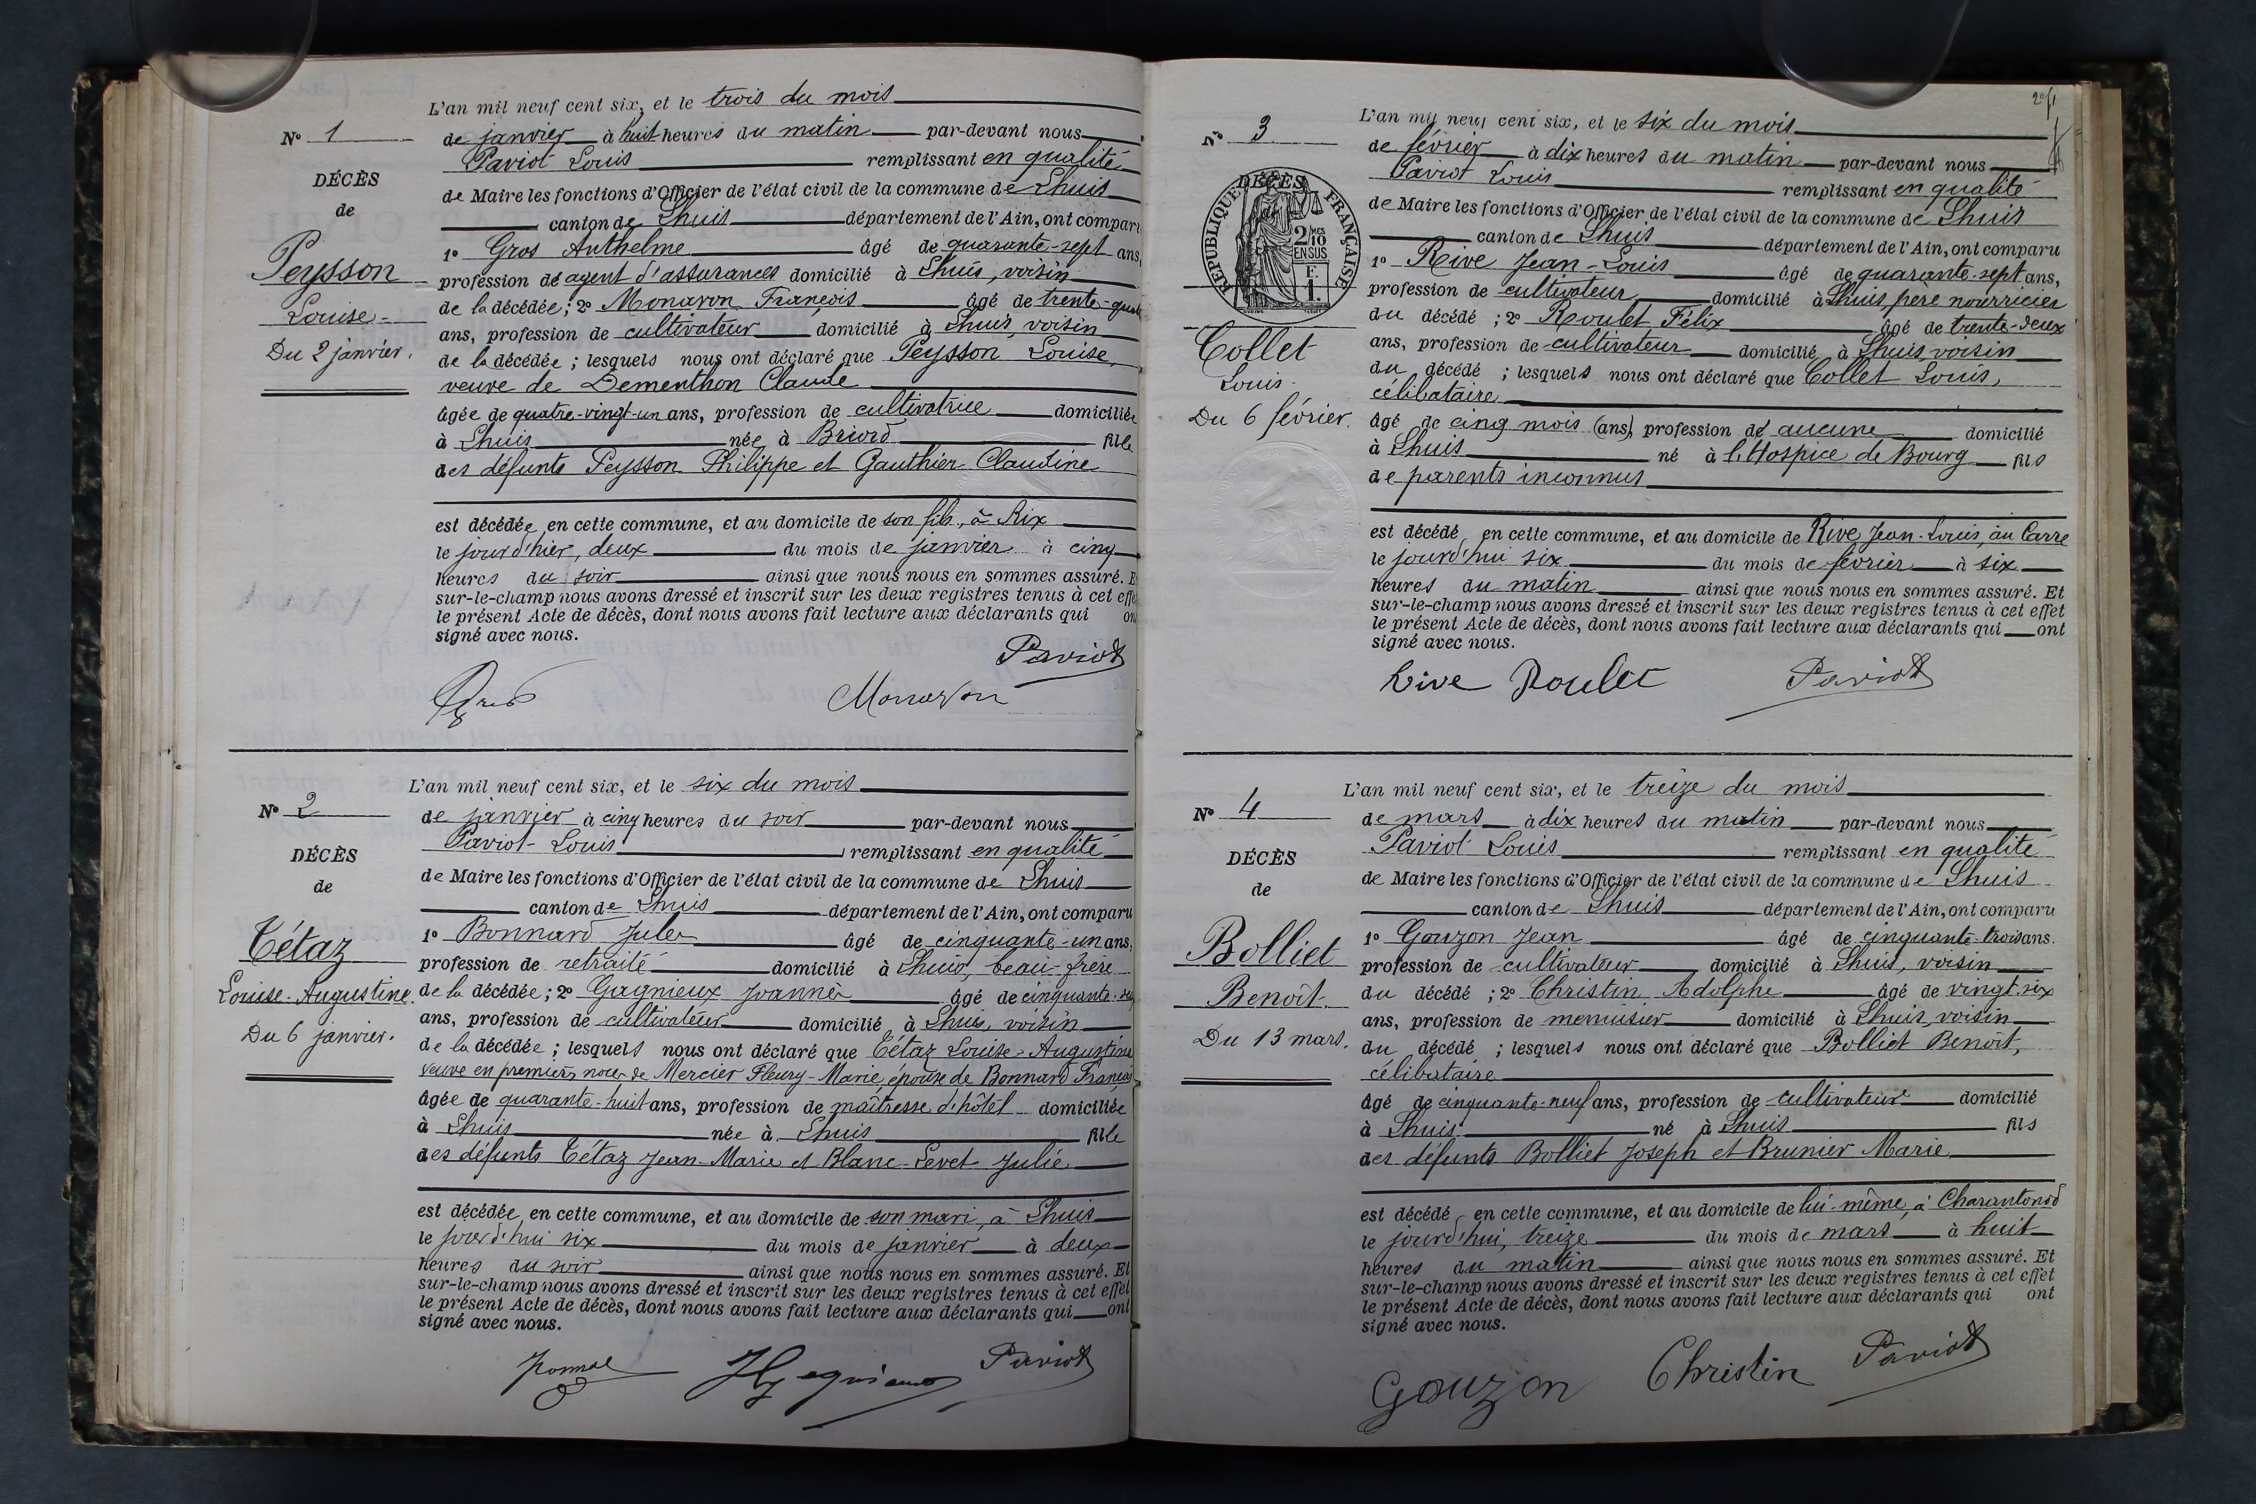 L'an mil neuf cent six, et le trois du mois
N° 1
de janvier à huit heures du matin par-devant nous
Paviot Louis remplissant en qualité
DÉCÈS
de Maire les fonctions d'Officier de l'état civil de la commune de Lhuis
de
canton de Lhuis département de l'Ain, ont compar
1° Gros Anthelme âgé de quarante-sept ans,
Peysson
profession de agent d'assurances domicilié à Lhuis, voisin
de la décédée; 2° Monavon François âgé de trente-quat
Louise
ans, profession de cultivateur domicilié à Lhuis, voisin
Du 2 janvier.
de la décédée; lesquels nous ont déclaré que Peysson Louise,
veuve de Dementhon Claude
âgée de quatre-vingt-un ans, profession de cultivatrice domiciliée
à Lhuis née à Briord fille
des défunts Peysson Philippe et Gauthier Claudine
est décédée en cette commune, et au domicile de son fils, à Rix
le jour d'hier, deux du mois de janvier à cinq
heures du soir ainsi que nous nous en sommes assuré. E
sur-le-champ nous avons dressé et inscrit sur les deux registres tenus à cet effe
le présent Acte de décès, dont nous avons fait lecture aux déclarants qui on
signé avec nous.
Paviot
Gros Monavon
L'an mil neuf cent six, et le six du mois
N° 2
de janvier à cinq heures du soir par-devant nous
Paviot Louis remplissant en qualité
DÉCÈS
de Maire les fonctions d'Officier de l'état civil de la commune de Lhuis
de
canton de Lhuis département de l'Ain, ont comparu
1° Bonnard Jules âgé de cinquante-un ans,
Tétaz
profession de retraité domicilié à Lhuis, beau-frère
Louise-Augustine.
de la décédée; 2° Gagnieux Joannès âgé de cinquante-
ans, profession de cultivateur domicilié à Lhuis, voisin
Du 6 janvier.
de la décédée; lesquels nous ont déclaré que Tétaz Louise-Augustine
veuve en premières noces de Mercier Fleury-Marie, épouse de Bonnard François
âgée de quarante-huit ans, profession de maîtresse d'hôtel domiciliée
à Lhuis née à Lhuis fille
des défunts Tétaz Jean-Marie et Blanc-Levet Julie
est décédée en cette commune, et au domicile de son mari, à Lhuis
le jourd'hui six du mois de janvier à deux
heures du soir ainsi que nous nous en sommes assuré. Et
sur-le-champ nous avons dressé et inscrit sur les deux registres tenus à cet effet
le présent Acte de décès, dont nous avons fait lecture aux déclarants qui ont
signé avec nous.
Paviot
L'an mil neuf cent six, et le six du mois
N° 3
de février à dix heures du matin par-devant nous
Paviot Louis remplissant en qualité
DÉCÈS
RÉPUBLIQUE FRANÇAISE
2/10 EN SUS
F. 1.
de Maire les fonctions d'Officier de l'état civil de la commune de Lhuis
canton de Lhuis département de l'Ain, ont comparu
1° Rive Jean-Louis âgé de quarante-sept ans,
profession de cultivateur domicilié à Lhuis père nourricier
du décédé; 2° Roulet Félix âgé de trente-deux
Collet
ans, profession de cultivateur domicilié à Lhuis, voisin
Louis.
du décédé; lesquels nous ont déclaré que Collet Louis,
célibataire
Du 6 février.
âgé de cinq mois (ans), profession de aucune domicilié
à Lhuis né à l'Hospice de Bourg fils
de parents inconnus
est décédé en cette commune, et au domicile de Rive Jean-Louis, au Carre
le jourd'hui six du mois de février à six
heures du matin ainsi que nous nous en sommes assuré. Et
sur-le-champ nous avons dressé et inscrit sur les deux registres tenus à cet effet
le présent Acte de décès, dont nous avons fait lecture aux déclarants qui ont
signé avec nous.
Rive Roulet Paviot
L'an mil neuf cent six, et le treize du mois
N° 4
de mars à dix heures du matin par-devant nous
Paviot Louis remplissant en qualité
DÉCÈS
de Maire les fonctions d'Officier de l'état civil de la commune de Lhuis
de
canton de Lhuis département de l'Ain, ont comparu
1° Gouzon Jean âgé de cinquante-trois ans.
Bolliet
profession de cultivateur domicilié à Lhuis, voisin
Benoît.
du décédé; 2° Christin Adolphe âgé de vingt-six
ans, profession de menuisier domicilié à Lhuis, voisin
Du 13 mars.
du décédé; lesquels nous ont déclaré que Bolliet Benoît,
célibataire
âgé de cinquante-neuf ans, profession de cultivateur domicilié
à Lhuis né à Lhuis fils
des défunts Bolliet Joseph et Brunier Marie
est décédé en cette commune, et au domicile de lui-même, à Charantonod
le jourd'hui, treize du mois de mars à huit
heures du matin ainsi que nous nous en sommes assuré. Et
sur-le-champ nous avons dressé et inscrit sur les deux registres tenus à cet effet
le présent Acte de décès, dont nous avons fait lecture aux déclarants qui ont
signé avec nous.
Gouzon Christin Paviot